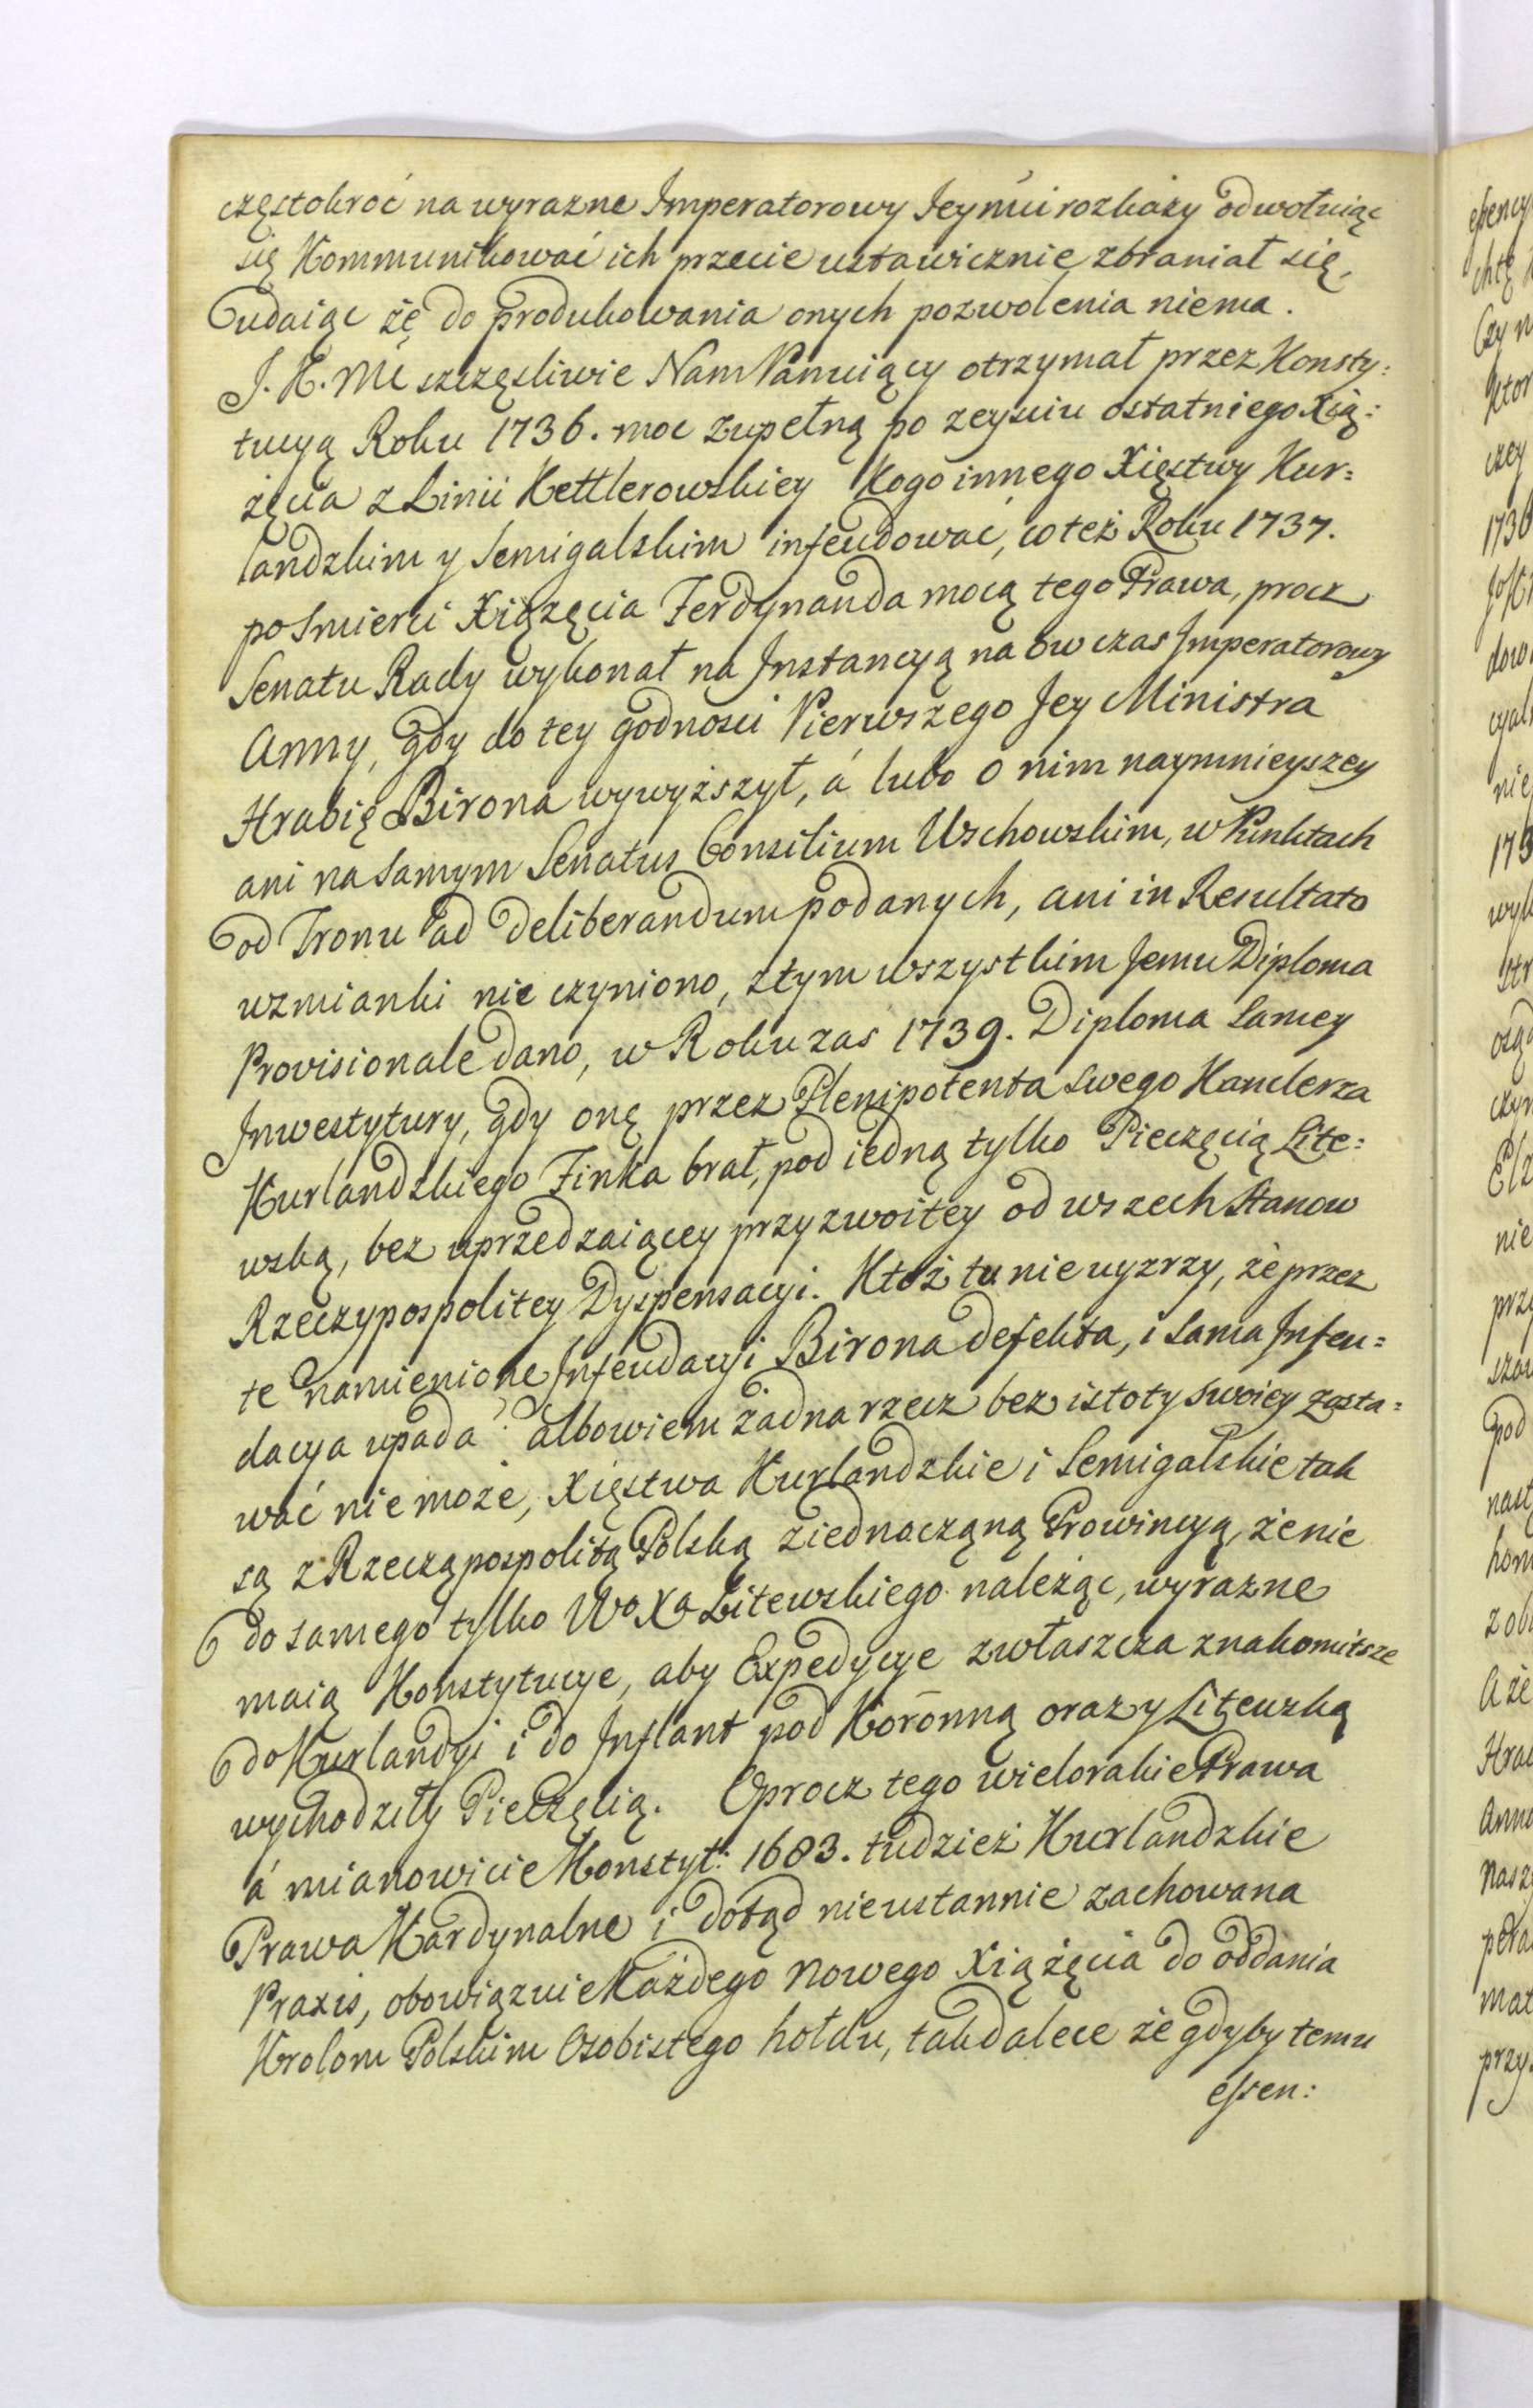 częstokroć na wyrazne Imperatorowy Jeymći rozkazy odwołuiąc
się Kommunikować ich przecie ustawicznie zbraniał się,
udaiąc żę do produkowania onych pozwolenia niema.
J. K. Mć szczęsliwie Nam Panuiący otrzymał przez Konsty:
tucyą Roku 1736. moc zupełną po zeysciu ostatniego Xią:
żęcia z Linii Kettlerowskiey Kogo innego Xięstwy Kur:
landzkim y Semigalskim infeudować, co też Roku 1737.
po Smierci Xiązęcia Ferdynanda mocą tego Prawa, procz
Senatu Rady wykonał na Instancyą na ow czas Imperatorowy
Anny, gdy do tey godnosci Pierwszego Jey Ministra
Hrabię Birona wywyższył, á lubo o nim naymnieyszey
ani na samym Senatus Consilium Wschowskim, w Punktach
od Tronu ad deliberandum podanych, ani in Resultato
wzmianki nie czyniono, z tym wszystkim Jemu Diploma
Provisionale dano, w Roku zas 1739. Diploma samey
Inwestytury, gdy onę przez Plenipotenta swego Kanclerza
Kurlandzkiego Finka brał, pod iedną tylko Pieczęcią Lite:
wską, bez uprzedzaiącey przyzwoitey od wszech Stanow
Rzeczypospolitey Dyspensacyi. Ktoż tu nie uyzrzy, że przez
te namienione Infeudacyi Birona defekta, i sama Infeu:
dacya upada? albowiem żadna rzecz bez istoty swoiey zosta:
wać nie może, Xięstwa Kurlandzkie i Semigalskie tak
są z Rzecząpospolitą Polską ziednoczoną Prowincyą, że nie
do samego tylko Wo Xa Litewskiego należąc, wyrazne
maią Konstytucye, aby Expedycye zwłaszcza znakomitsze
do Kurlandyi i do Inflant pod Koronną oraz y Litewską
wychodziły Pieczęcią. Oprocz tego wielorakie Prawa
á mianowicie Konstyt: 1683. tudzież Kurlandzkie
Prawa Kardynalne i dotąd nieustannie zachowana
Praxis, obowiązuie Każdego Nowego Xiążęcia do oddania
Krolom Polskim Osobistego hołdu, takdalece że gdyby temu
essen: